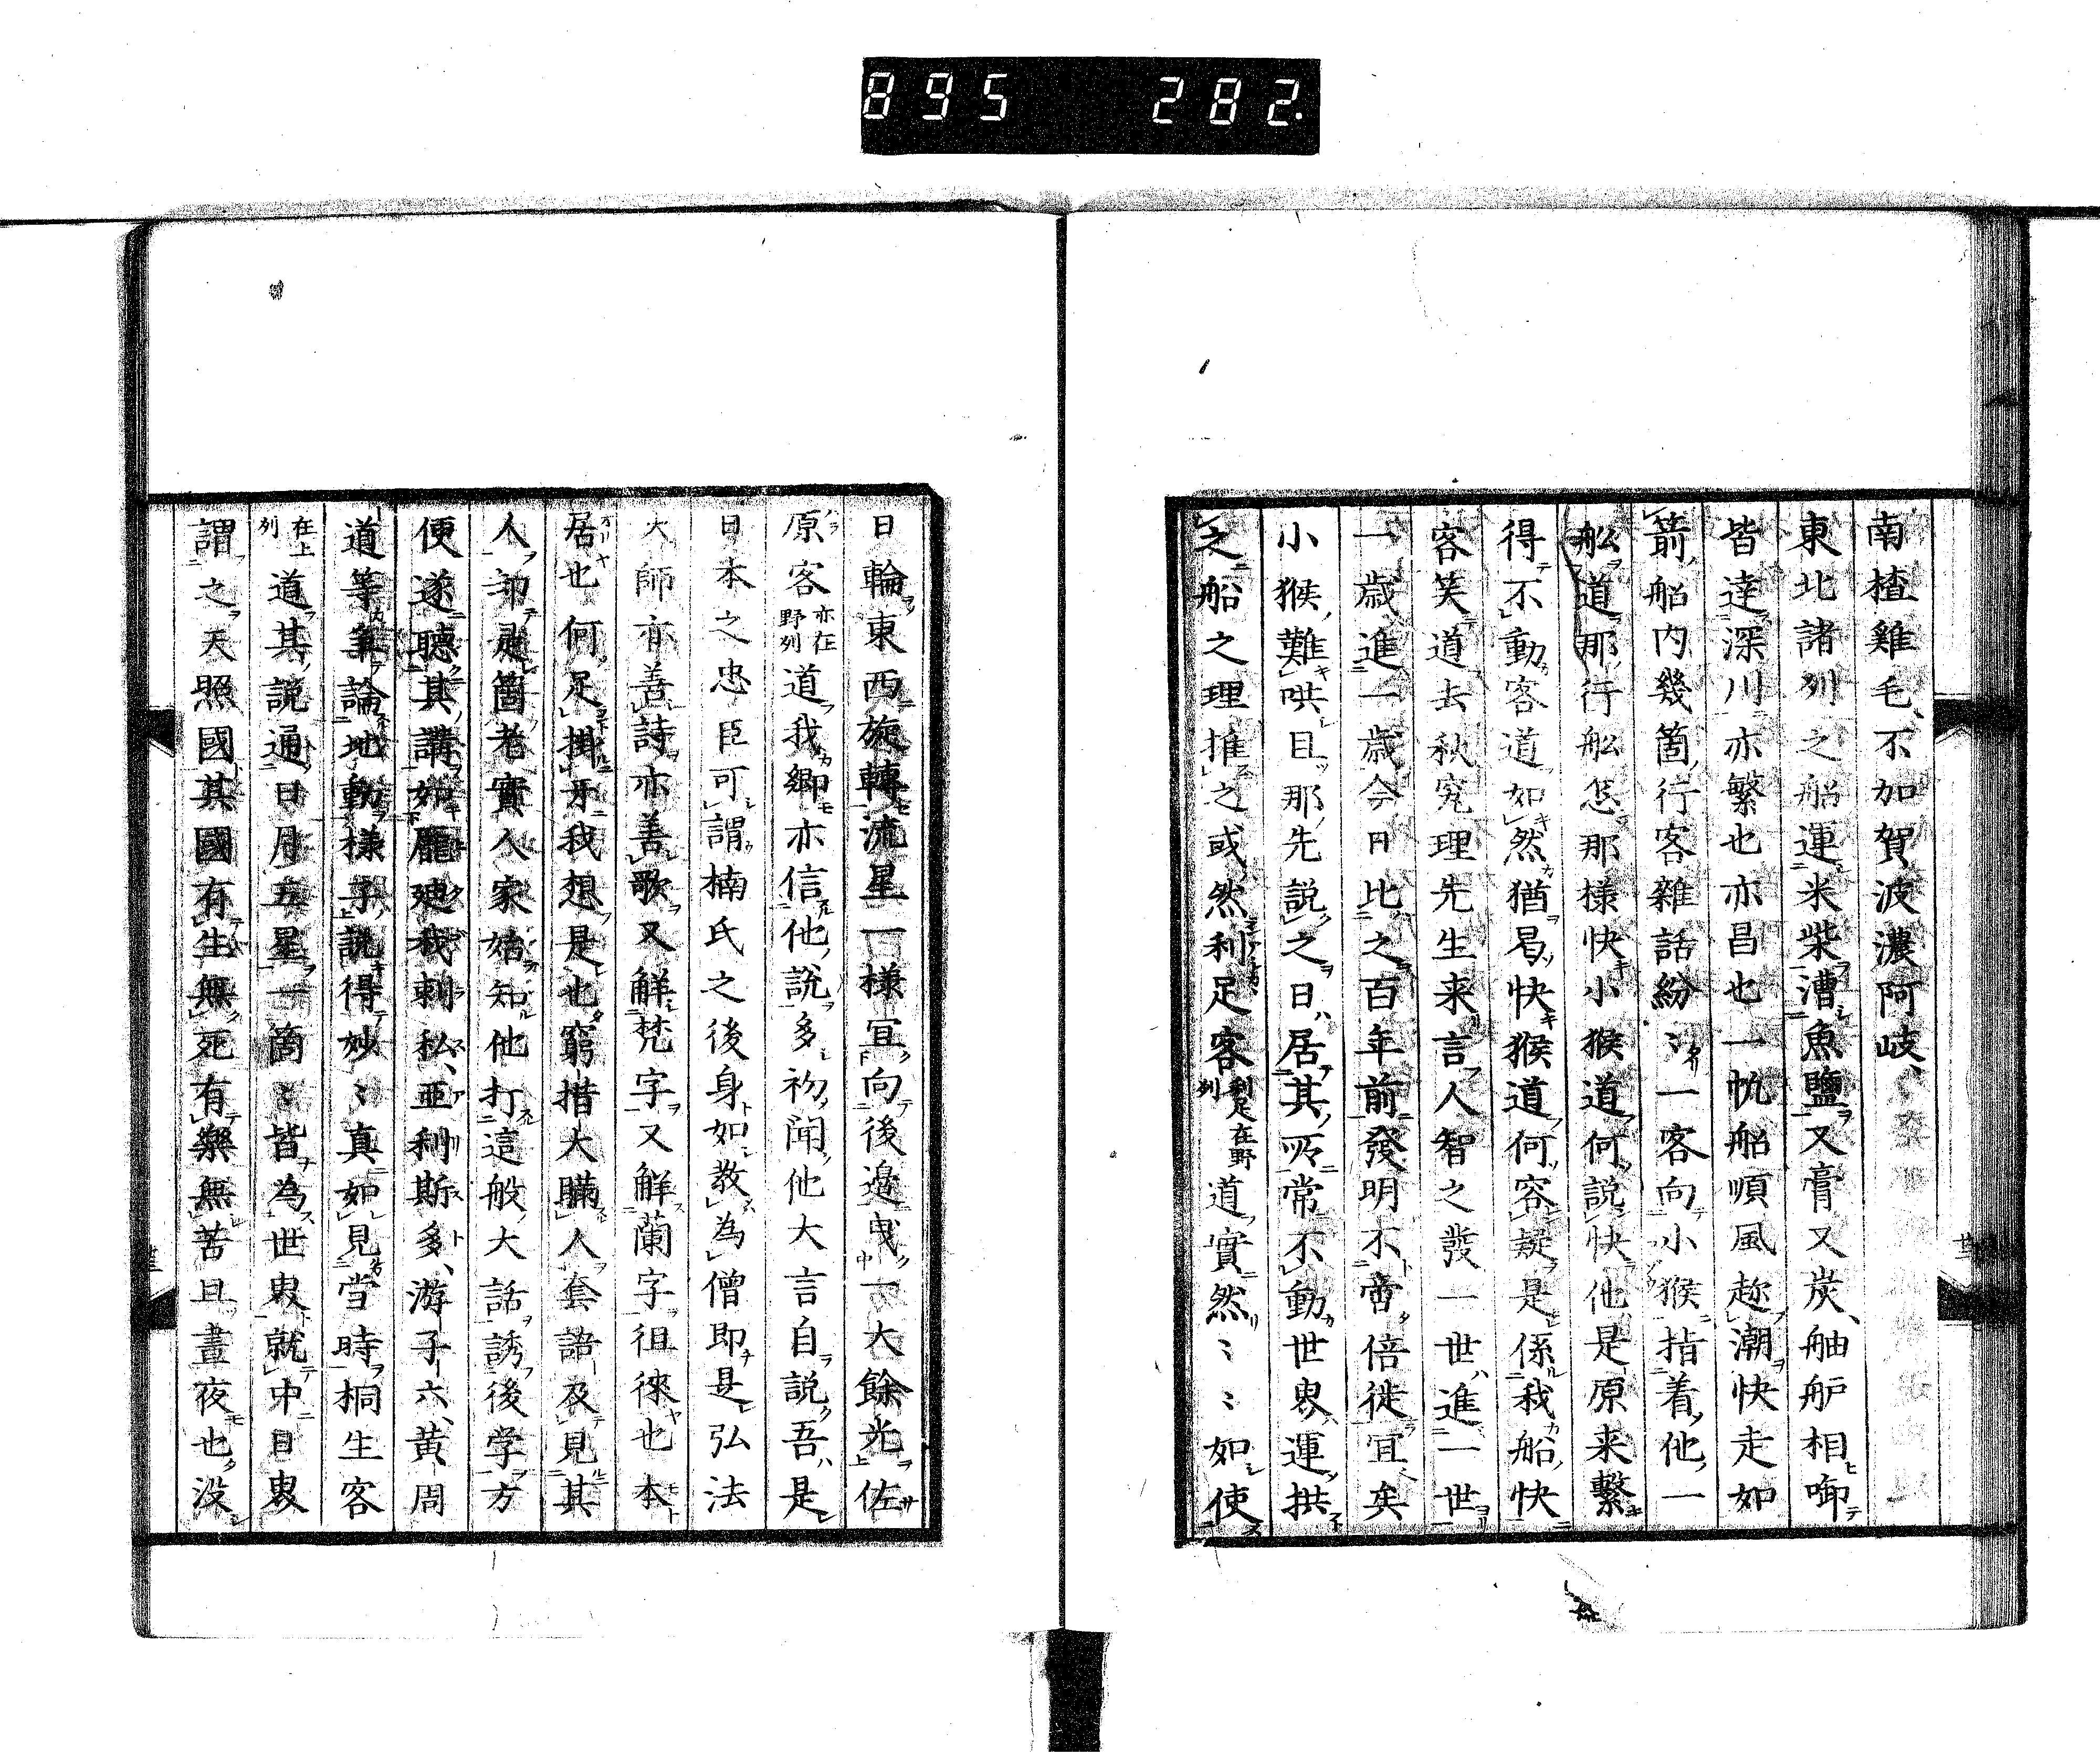 895 282.
南楂雞毛、不加賀、波濃阿岐、
東北諸列之船運米柴漕魚鹽又膏又炭、舳舻相啣
皆逹深川亦繁也亦昌也一帆船順風趂潮快走如
箭、船内幾箇、行客雜話紛〻一客向小猴指着他、一
舩道那行舩怎那様快小猴道何説快他是原来繋
得不動客道如然猶曷快猴道何容疑是係我船快
客笑道去秋究理先生来言人智之發一世進一世
一歳進一歳今日比之百年前發明不啻倍徙冝矣
小猴、難哄且那先説之日居其所常不動世界運拱
之船之理推之或然利足客利足在野列道實然〻〻如使
日輪東西旋轉流星一様冝向後邉曳一大餘光佐
原客亦在野列道我卿亦信他説多初聞他大言自説吾是
日本之忠臣可謂楠氏之後身如教為僧即是弘法
大師亦善詩亦善歌又解梵字又解蘭字徂徠也本
居也何足掛牙我想是也窮措大瞞人套語及見其
人却是箇老實人家始知他打這般大話誘後学方
便遂聽其講如龎廸我、剌私、亜利斯多、游子六、黄周
道等争論地動様子説得妙〻真如見當時桐生客
在上列道其説通日月五星一箇〻皆為世界就中日界
謂之天照國其國有生無死有樂無苦且晝夜也没